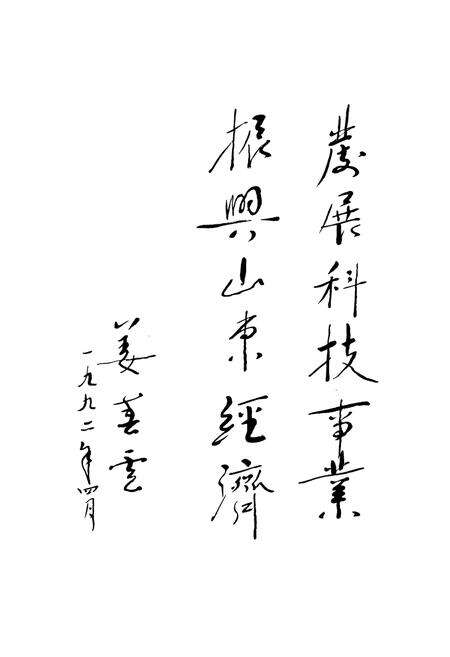 發展科技事業
振興山東經濟
姜春雲
一九九二年四月